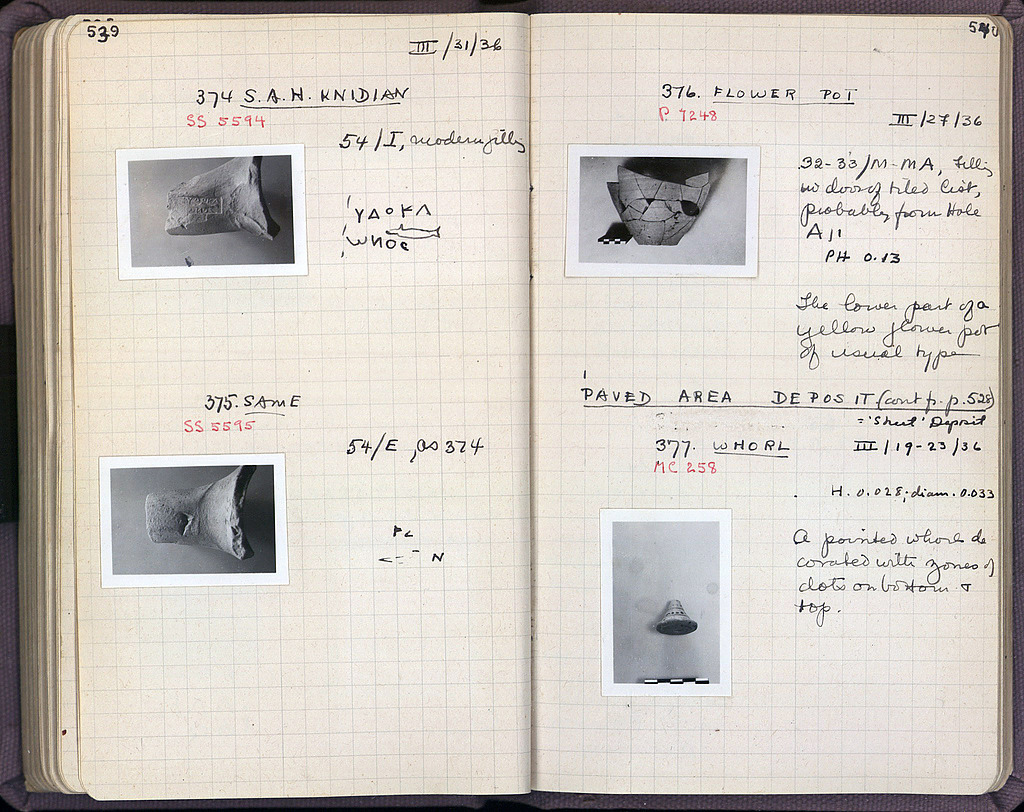 539
III/31/36
374 S.A.H. KNIDIAN
SS 5594
54/I, modern filling
ΥΔΟΚΛ
ΩΝΟC
375. SAME
SS 5595
54/E, as 374
N
540
376. FLOWER POT
P. 7248
III/27/36
32-33/M-MA, filling
in door of tiled cist,
probably from Hole
A,1
PH 0.13
The lower part of a
yellow flower pot
of usual type
PAVED AREA DEPOSIT (cont fr. p. 528)
= 'Shut' Deposit
377. WHORL
III/19-23/36
MC 258
H. 0.028; diam. 0.033
A pointed whorl de
corated with zones of
dots on bottom &
top.